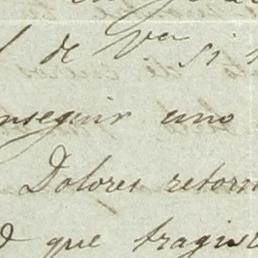 de Vª si
nseguir uno
Dolores retorn
que tragis